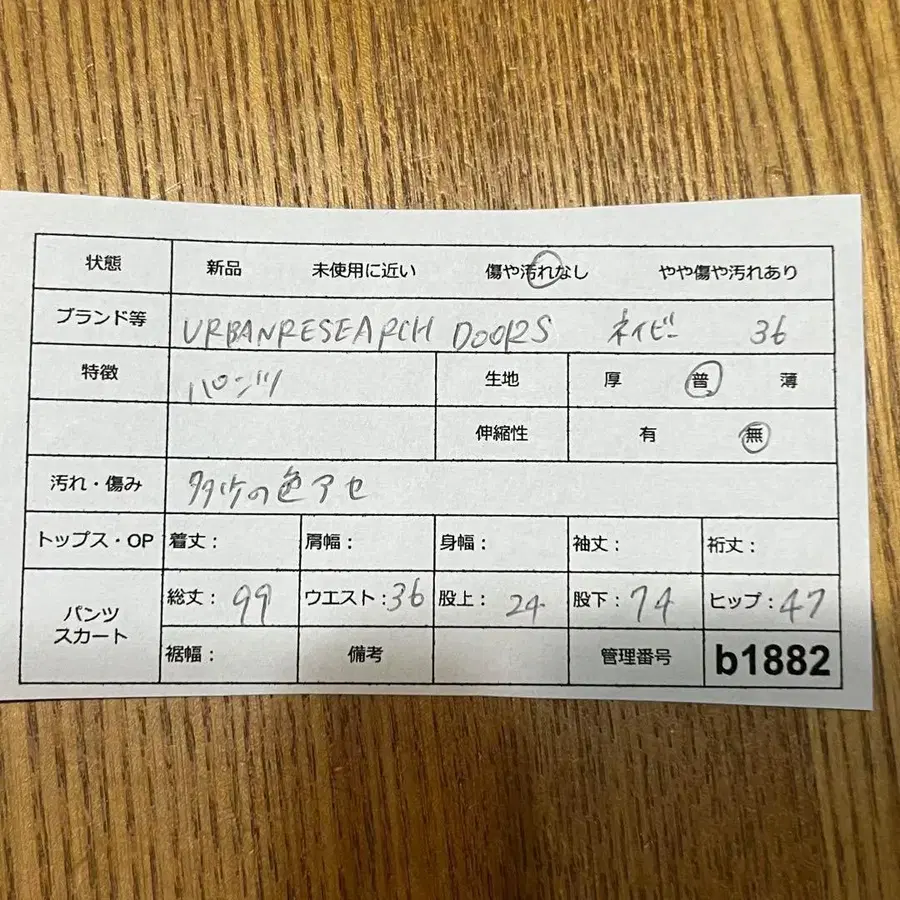 状態 新品 未使用に近い 傷や汚れなし やや傷や汚れあり
ブランド等 URBANRESEARCH DOORS ネイビー 36
特徴 パンツ 生地 厚 普 薄
伸縮性 有 無
汚れ・傷み 多少の色アセ
トップス・OP 着丈: 肩幅: 身幅: 袖丈: 裄丈:
パンツ スカート 総丈: 99 ウエスト: 36 股上: 24 股下: 74 ヒップ: 47
裾幅: 備考 管理番号 b1882